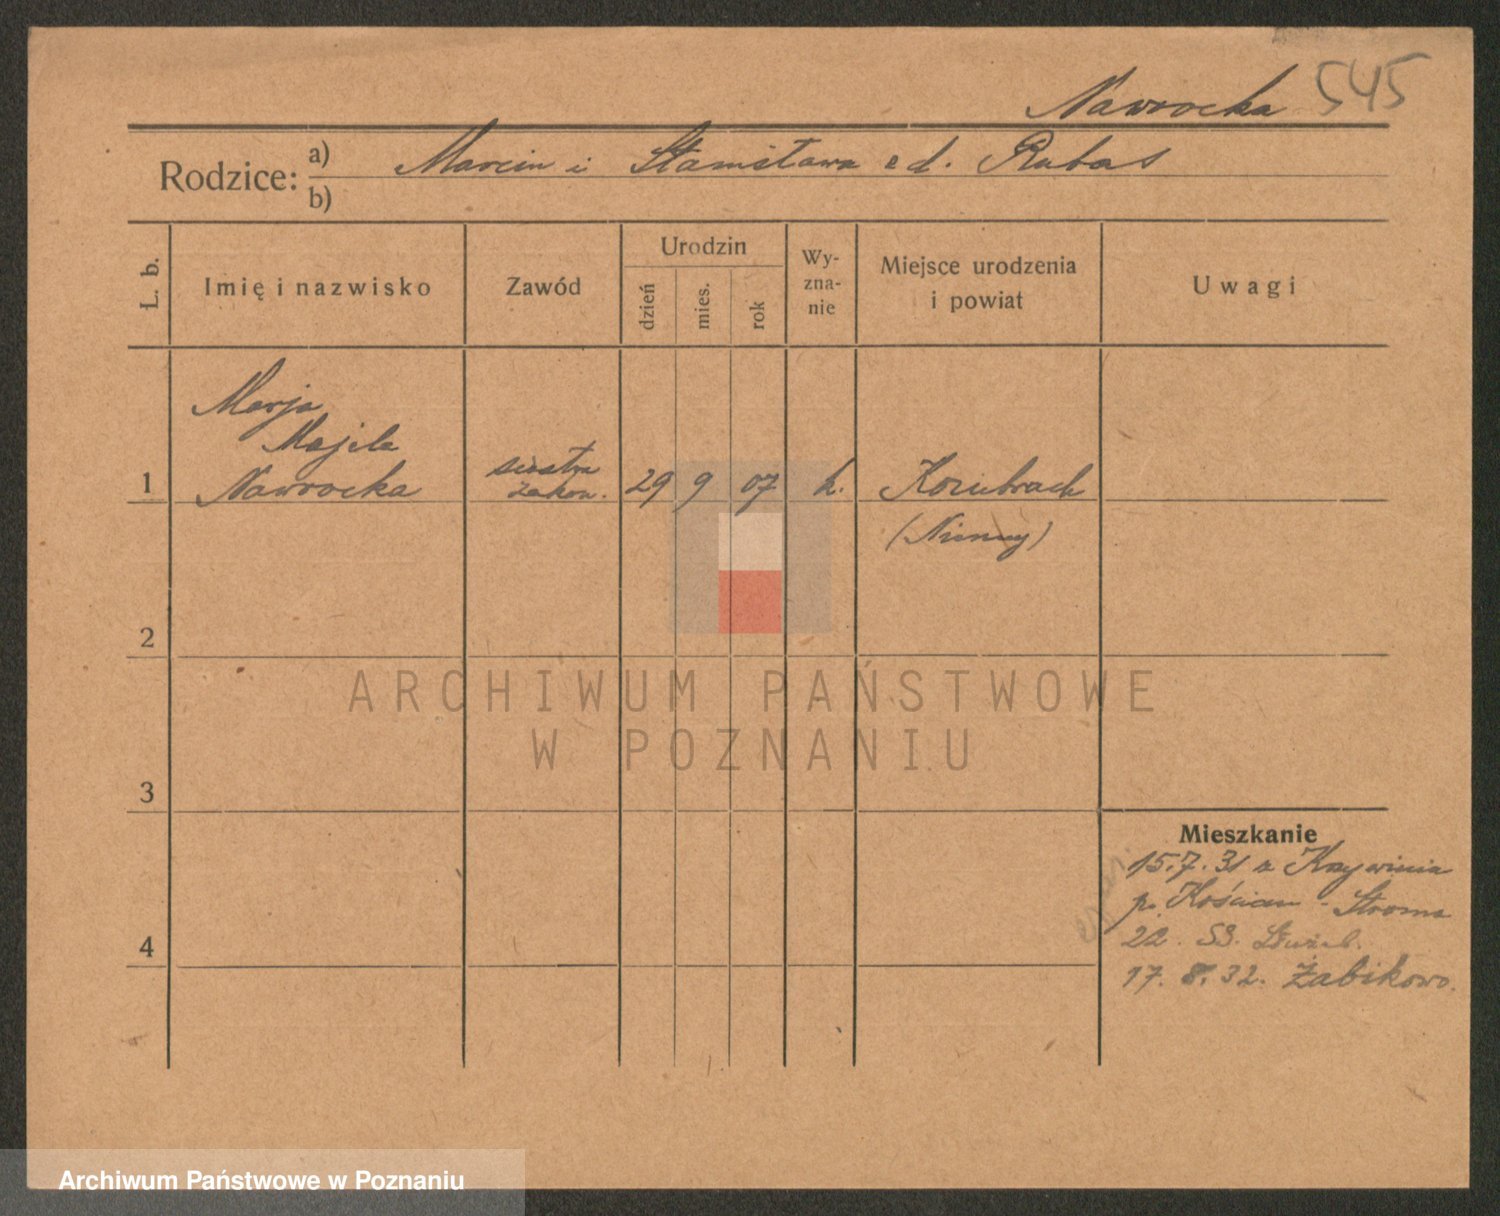 Nawrocka 545
Rodzice: a) Marcin i Stanisława z d. Rubas
b)
L. b. Imię i nazwisko Zawód Urodzin dzień mies. rok Wy-zna-nie Miejsce urodzenia i powiat Uwagi
Marja
Majela
1 Nawrocka siostra zakon. 29 9 07 k. Kozubrach
(Niemcy)
2
ARCHIWUM PAŃSTWOWE
W POZNANIU
3
Mieszkanie
15.7.31 z Krzywinia
p. Kościan - Stroma
4 22.
17. 8. 32. Żabikowo.
Archiwum Państwowe w Poznaniu